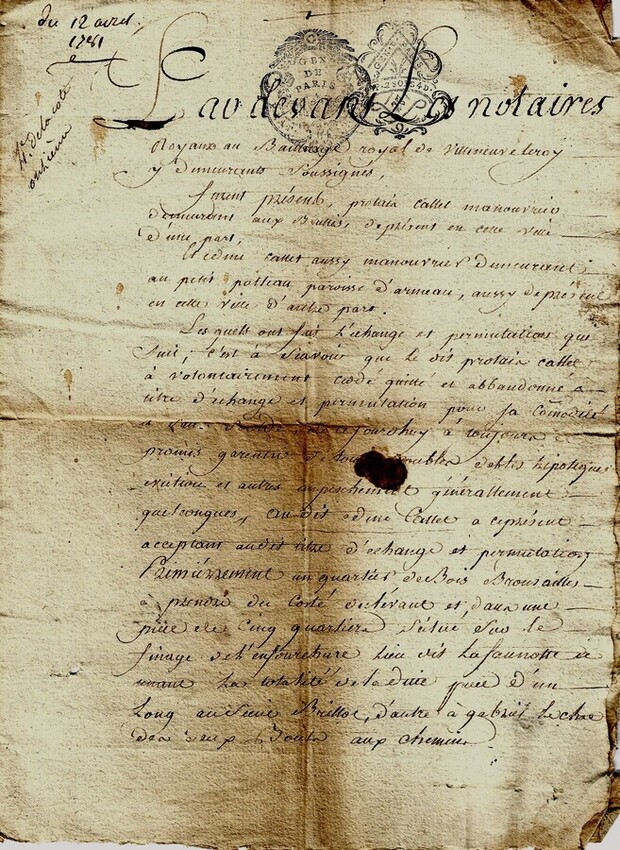 du 12 avril
1781
GEN DE PARIS
Par devant Les notaires
Royaux au Bailliage royal de Villeneuve le roy
y demeurants soussignés,
furent présens, protais callet manouvrier
demeurant aux Bruslés, de présent en cette ville
d'une part,
Et edme callet aussy manouvrier demeurant
au petit potteau paroisse d'armeau, aussy de présent
en cette ville d'autre part.
Lesquels ont fait L'échange et permutation qui
suit, c'est à scavoir que le dit protais callet
à volontairement cédé quitté et abbandonné à
titre d'échange et permutation pour sa
ce jourdhuy à toujours et
promis garentir de tous troubles debtes hipoteques
evictions et autres empeschement générallement
quelconques, au dit edme Callet a ce présent
acceptant audit titre d'échange et permutation,
Primièrement un quartier de Bois Brousailles
à prendre du Costé du lévant et dans une
pièce de Cinq quartiers située sur le
finage de l'enfourchure Lieu dit La
tenant La totalité de ladite piece d'un
Long au Brillot, d'autre à gabriel
des deux Bouts aux chemins